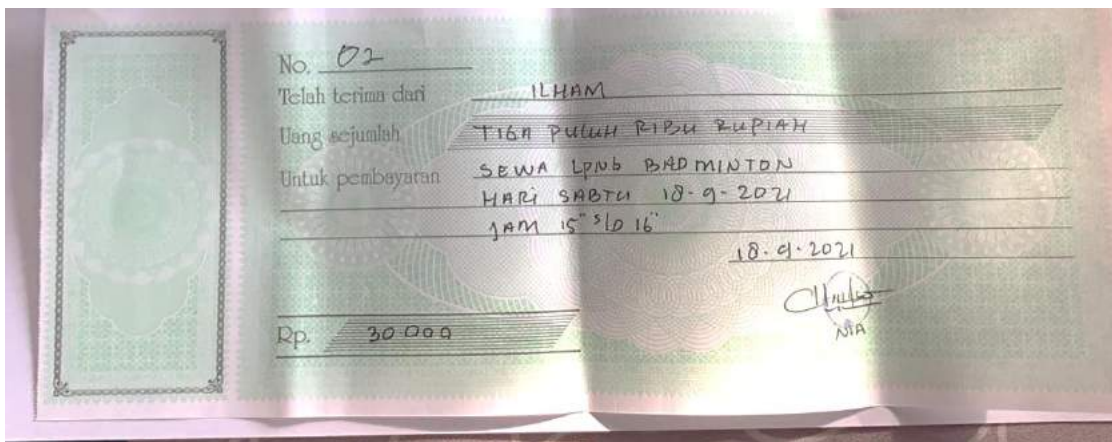 No. 02
Telah terima dari ILHAM
Uang sejumlah TIGA PULUH RIBU RUPIAH
Untuk pembayaran SEWA LPNG BADMINTON
HARI SABTU 18-9-2021
JAM 15" S/D 16"
18.9.2021
NIA
Rp. 30.000